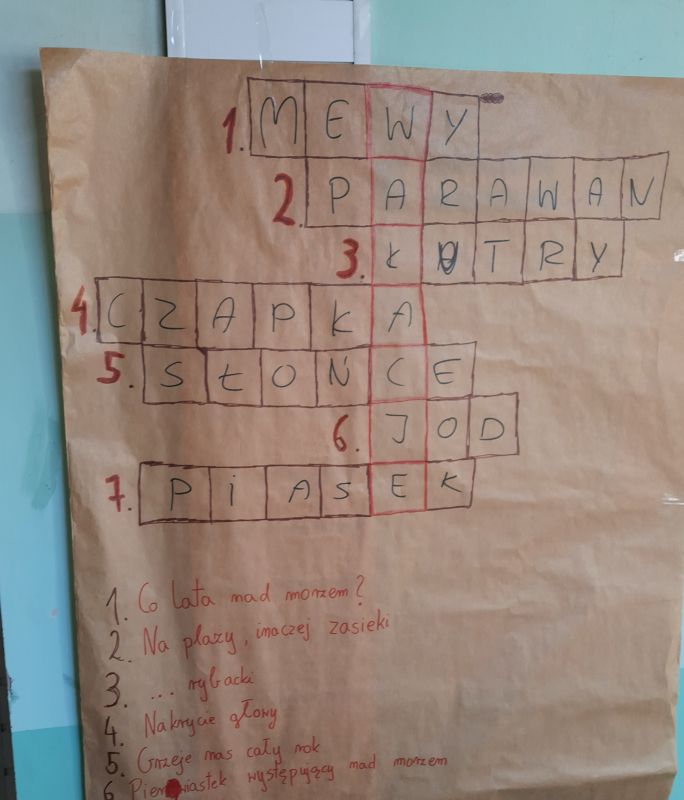 1. MEWY
2. PARAWAN
3. KUTRY
4. CZAPKA
5. SŁOŃCE
6. JOD
7. PIASEK
1. Co lata nad morzem?
2. Na plaży, inaczej zasieki
3. ... rybacki
4. Nakrycie głowy
5. Grzeje nas cały rok
6 Pierwiastek występujący nad morzem